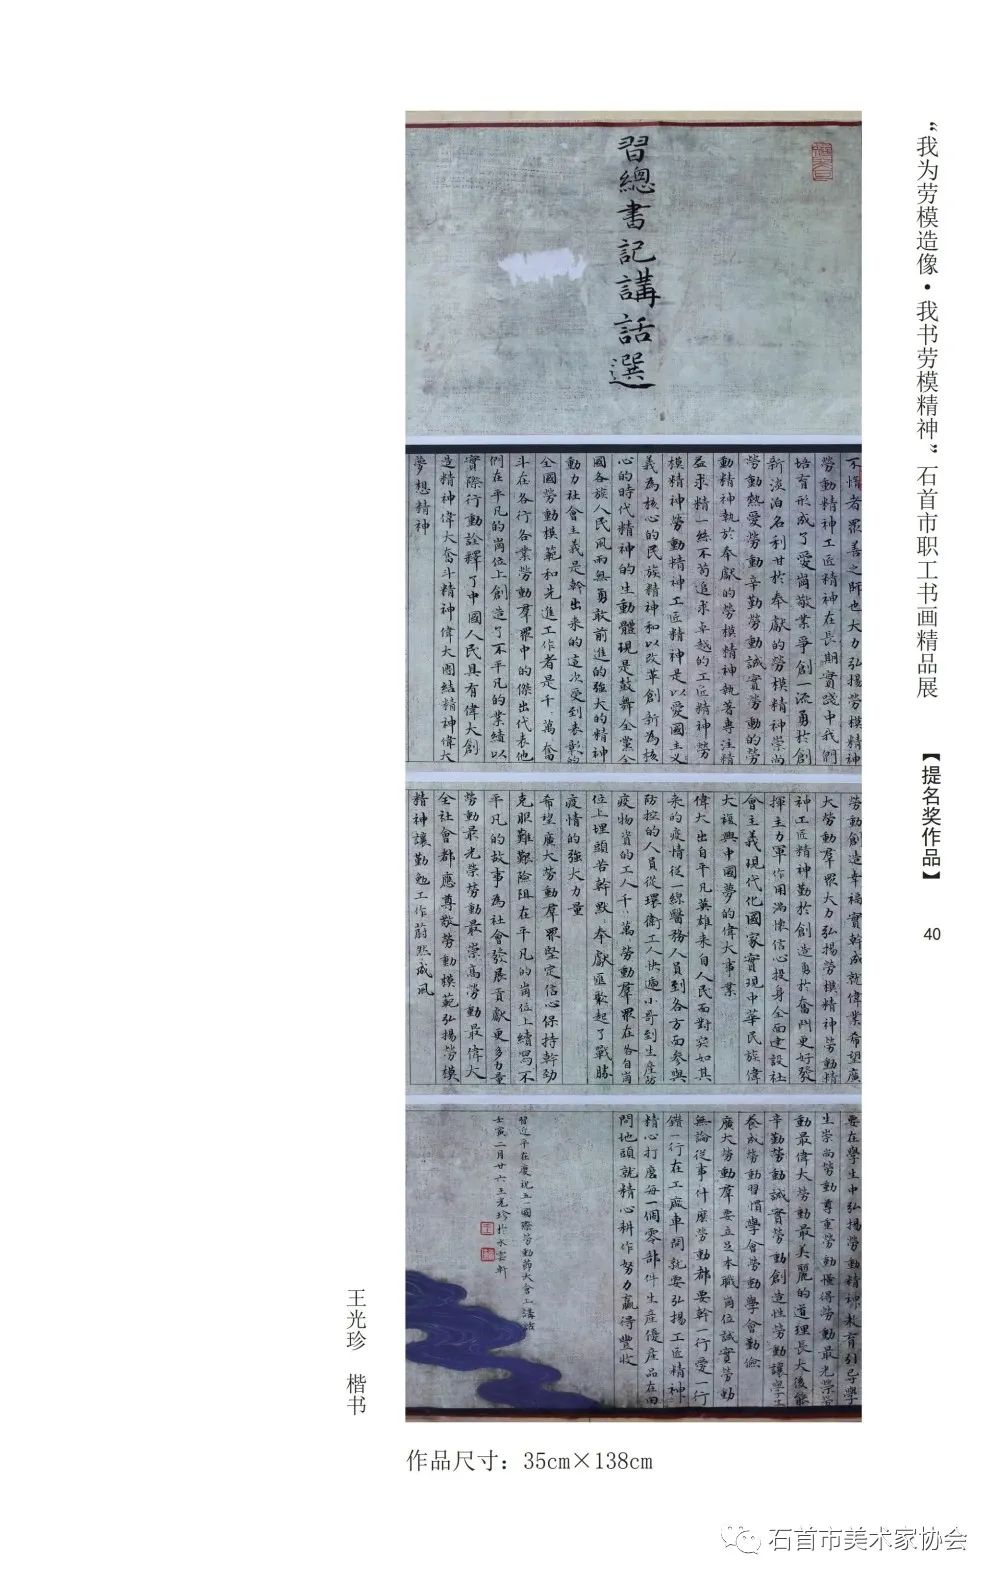 “我为劳模造像·我书劳模精神”石首市职工书画精品展
【提名奖作品】
40
習總書記講話選
不惰者眾善之師也大力弘揚勞模精神
勞動精神工匠精神在長期實踐中我們
培育形成了愛崗敬業爭創一流勇於創
新淡泊名利甘於奉獻的勞模精神崇尚
勞動熱愛勞動辛勤勞動誠實勞動的勞
動精神執於奉獻的勞模精神執著專注精
益求精一絲不苟追求卓越的工匠精神勞
模精神勞動精神工匠精神是以愛國主义
義為核心的民族精神和以改革創新為核
心的時代精神的生動體現是鼓舞全黨全
國各族人民風雨無勇敢前進的強大的精神
動力社會主義是幹出来的這次受到表彰的
全國勞動模範和先進工作者是千萬奮
斗在各行各業勞動羣眾中的傑出代表他
們在平凡的崗位上創造了不平凡的業績以
實際行動詮釋了中國人民具有偉大創
造精神偉大奮斗精神偉大團結精神偉大
夢想精神
勞動創造幸福實幹成就偉業希望廣
大勞動羣眾大力弘揚勞模精神勞動精
神工匠精神勤於創造勇於奮鬥更好發
揮主力軍作用滿懷信心投身全面建設社
會主義現代化國家實現中華民族偉
大複興中國夢的偉大事業
偉大出自平凡英雄来自人民面對突如其
来的疫情從一線醫務人員到各方面參與
防控的人員從環衛工人快遞小哥到生產防
疫物資的工人千萬勞動羣眾在各自崗
位上埋頭苦幹默奉獻匯聚起了戰勝
疫情的強大力量
希望廣大勞動羣眾堅定信心保持幹勁
克服難艱險阻在平凡的崗位上續寫不
平凡的故事為社會發展貢獻更多力量
勞動最光榮勞動最崇高勞動最偉大
全社會都應尊敬勞動模範弘揚勞模
精神讓勤勉工作蔚然成風
要在學生中弘揚勞動精神教育引导學
生崇尚勞動尊重勞動懂得勞動最光榮勞
動最偉大勞動最美麗的道理長大後能
辛勤勞動誠實勞動創造性勞動讓學生
養成勞動習慣學會勞動學會勤儉
廣大勞動羣要立足本職崗位誠實勞動
無論從事什麼勞動都要幹一行愛一行
鑽一行在工廠車間就要弘揚工匠精神
精心打磨每一個零部件生產優產品在田
間地頭就精心耕作努力贏得豐收
習近平在慶祝五一國際勞動節大會上講話
壬寅二月廿六王光珍於水雲軒
王光珍 楷书
作品尺寸：35cm×138cm
石首市美术家协会